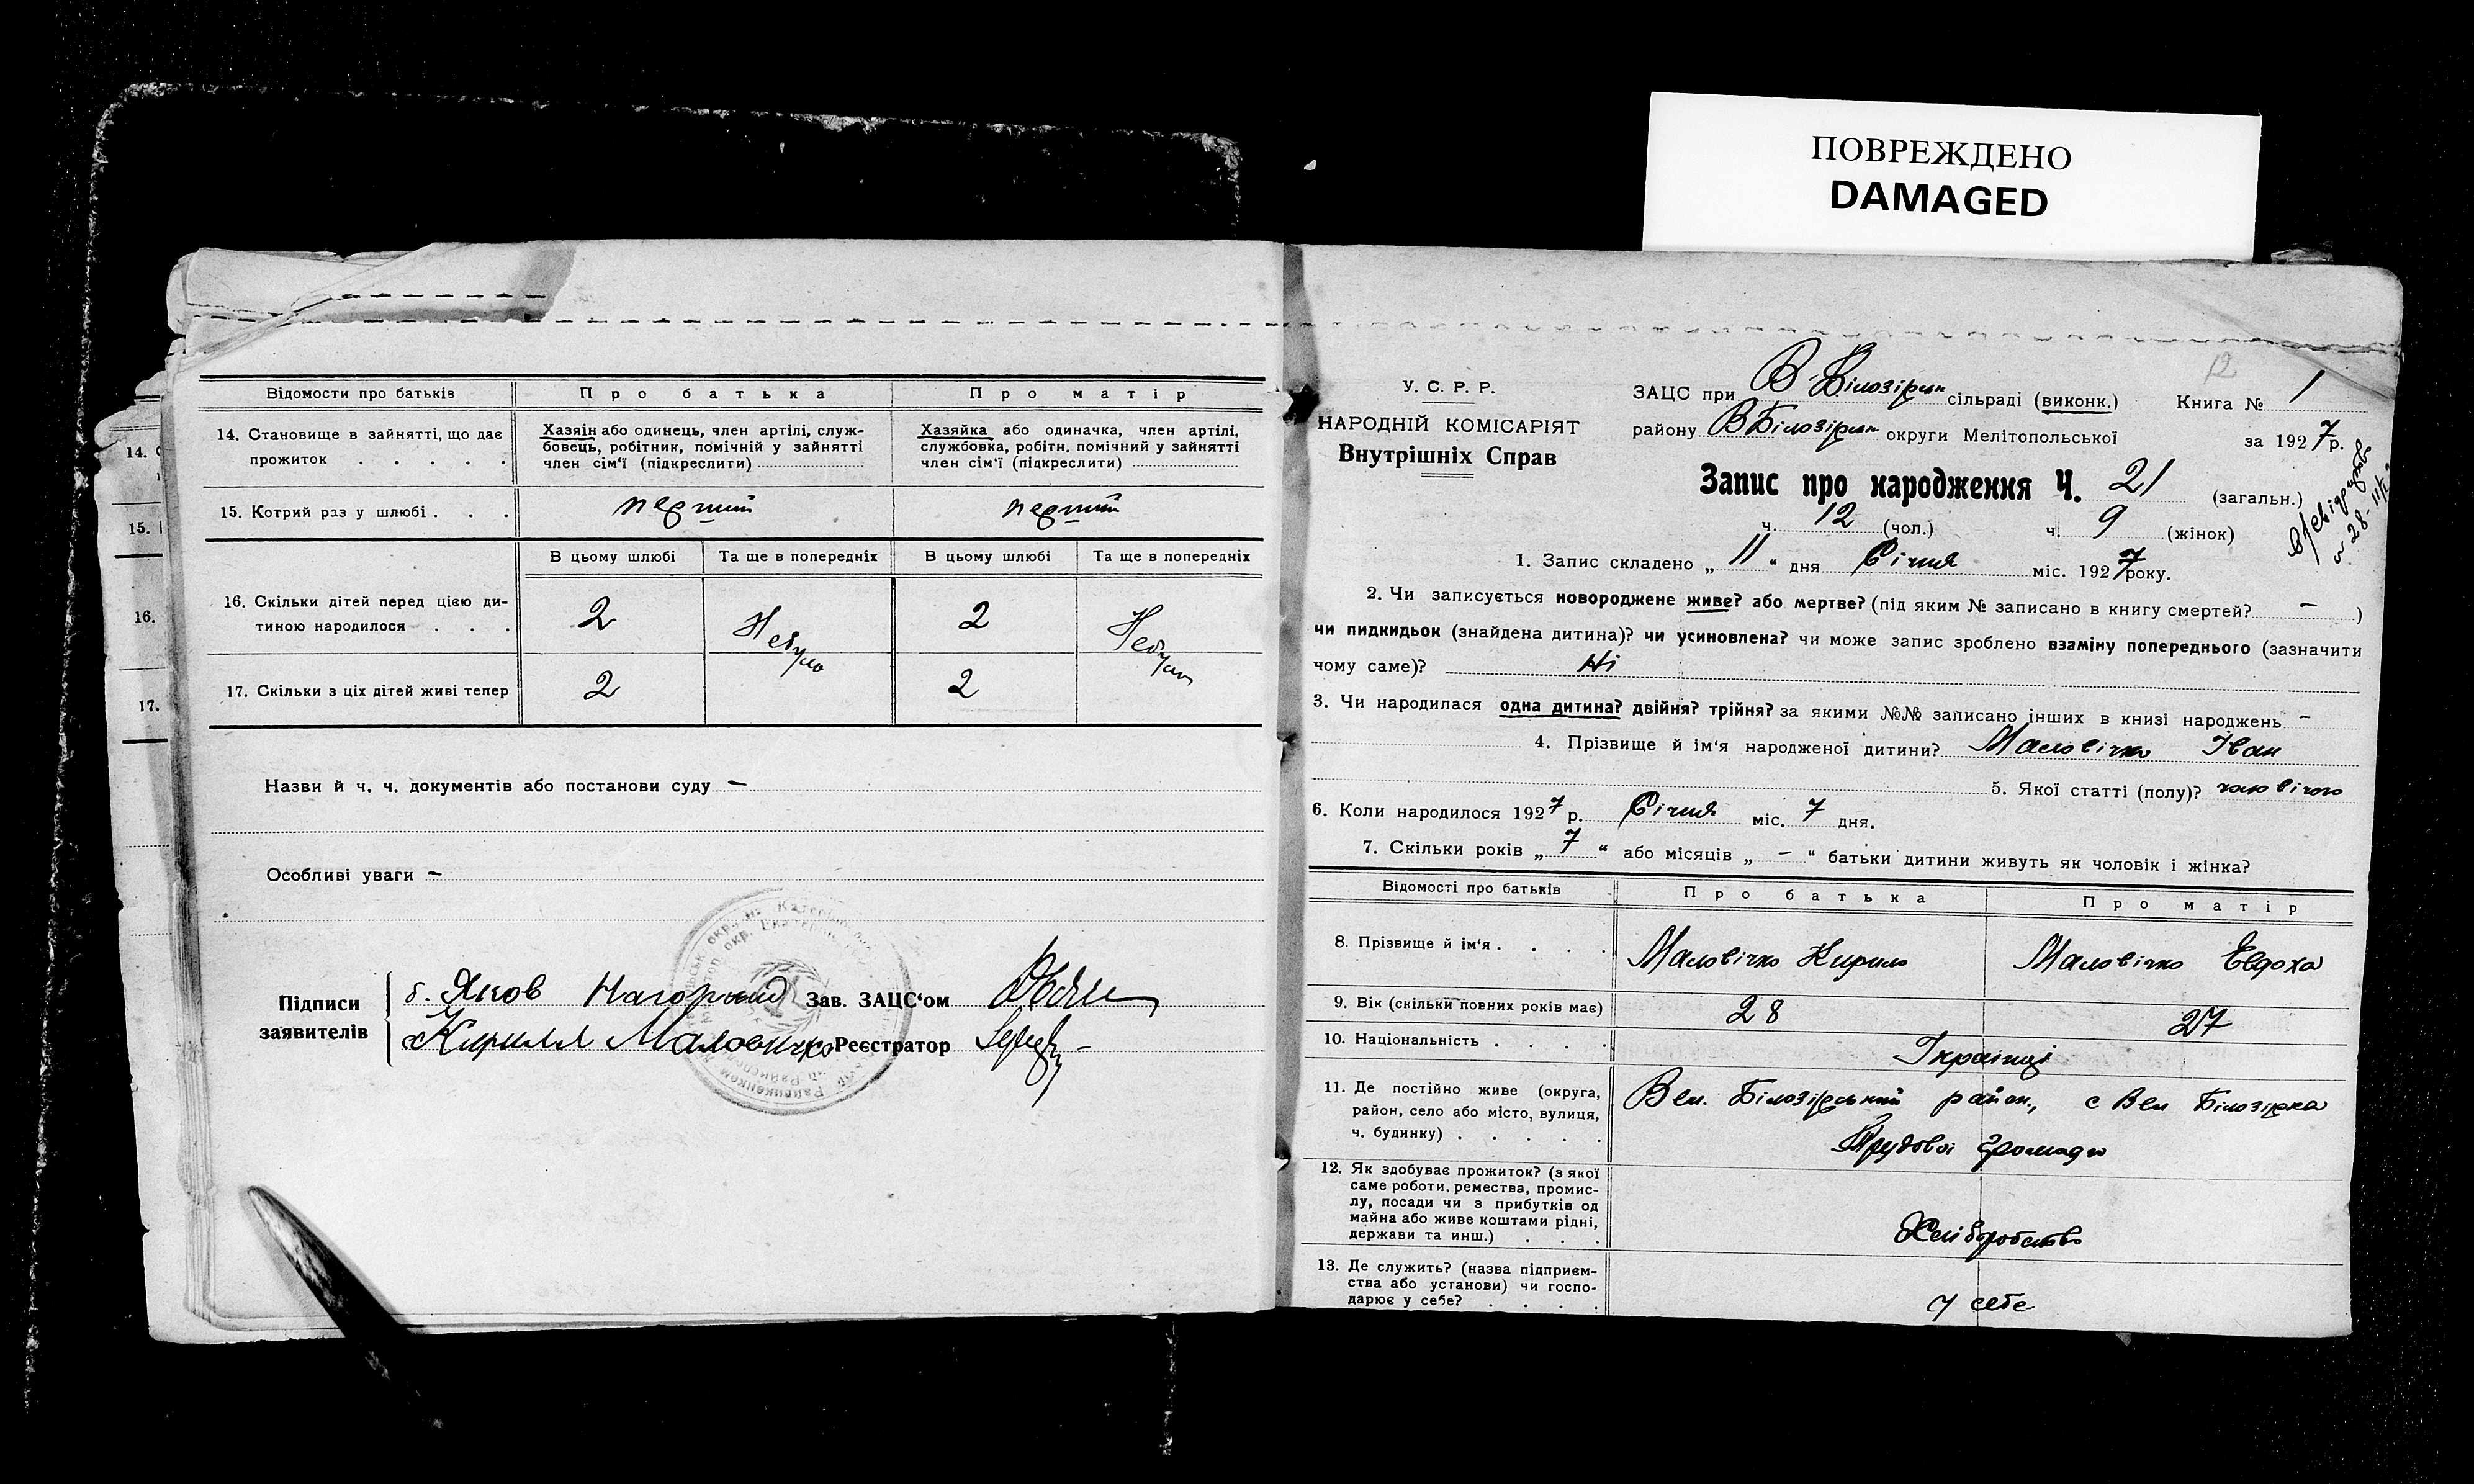 ПОВРЕЖДЕНО
DAMAGED
Відомости про батьків
Про батька
Про матір
14. Становище в зайнятті, що дає прожиток
Хазяїн або одинець, член артілі, служ-
бовець, робітник, помічній у зайнятті
член сім'ї (підкреслити)
Хазяйка або одиначка, член артілі,
службовка, робітн. помічний у зайнятті
член сім'ї (підкреслити)
15. Котрий раз у шлюбі
перший
перший
В цьому шлюбі
Та ще в попередніх
В цьому шлюбі
Та ще в попередніх
16. Скільки дітей перед цією ди-
тиною народилося
2
Небуло
2
Небуло
17. Скільки з ціх дітей живі тепер
2
2
Назви й ч. ч. документів або постанови суду —
Особливі уваги —
Підписи заявителів
б. Яков Нагорный
Зав. ЗАЦС'ом
Кирилл Маловичко
Реєстратор
14.
15.
16.
17.
12
У. С. Р. Р.
НАРОДНІЙ КОМІСАРІЯТ
Внутрішніх Справ
ЗАЦС при В-Білозірськ сільраді (виконк.) Книга № 1
району ВБілозірськ округи Мелітопольської за 1927 р.
Запис про народження Ч. 21 (загальн.)
ч. 12 (чол.) ч. 9 (жінок)
1. Запис складено „11“ дня Січня міс. 1927 року.
2. Чи записується новороджене живе? або мертве? (під яким № записано в книгу смертей? — )
чи пидкидьок (знайдена дитина)? чи усиновлена? чи може запис зроблено взаміну попереднього (зазначити
чому саме)? Ні
3. Чи народилася одна дитина? двійня? трійня? за якими №№ записано інших в книзі народжень —
4. Прізвище й ім'я народженої дитини? Маловічко Іван
5. Якої статті (полу)? чоловічого
6. Коли народилося 1927 р. Січня міс. 7 дня.
7. Скільки років „7“ або місяців „—“ батьки дитини живуть як чоловік і жінка?
Відомості про батьків
Про батька
Про матір
8. Прізвище й ім'я
Маловічко Кирило
Маловічко Євдоха
9. Вік (скільки повних років має)
28
27
10. Національність
Українці
11. Де постійно живе (округа,
район, село або місто, вулиця,
ч. будинку)
Вел. Білозірський район, с Вел Білозірка
Трудової громади
12. Як здобуває прожиток? (з якої
саме роботи, ремества, промис-
лу, посади чи з прибутків од
майна або живе коштами рідні,
держави та инш.)
Хліборобство
13. Де служить? (назва підприєм-
ства або установи) чи госпо-
дарює у себе?
у себе